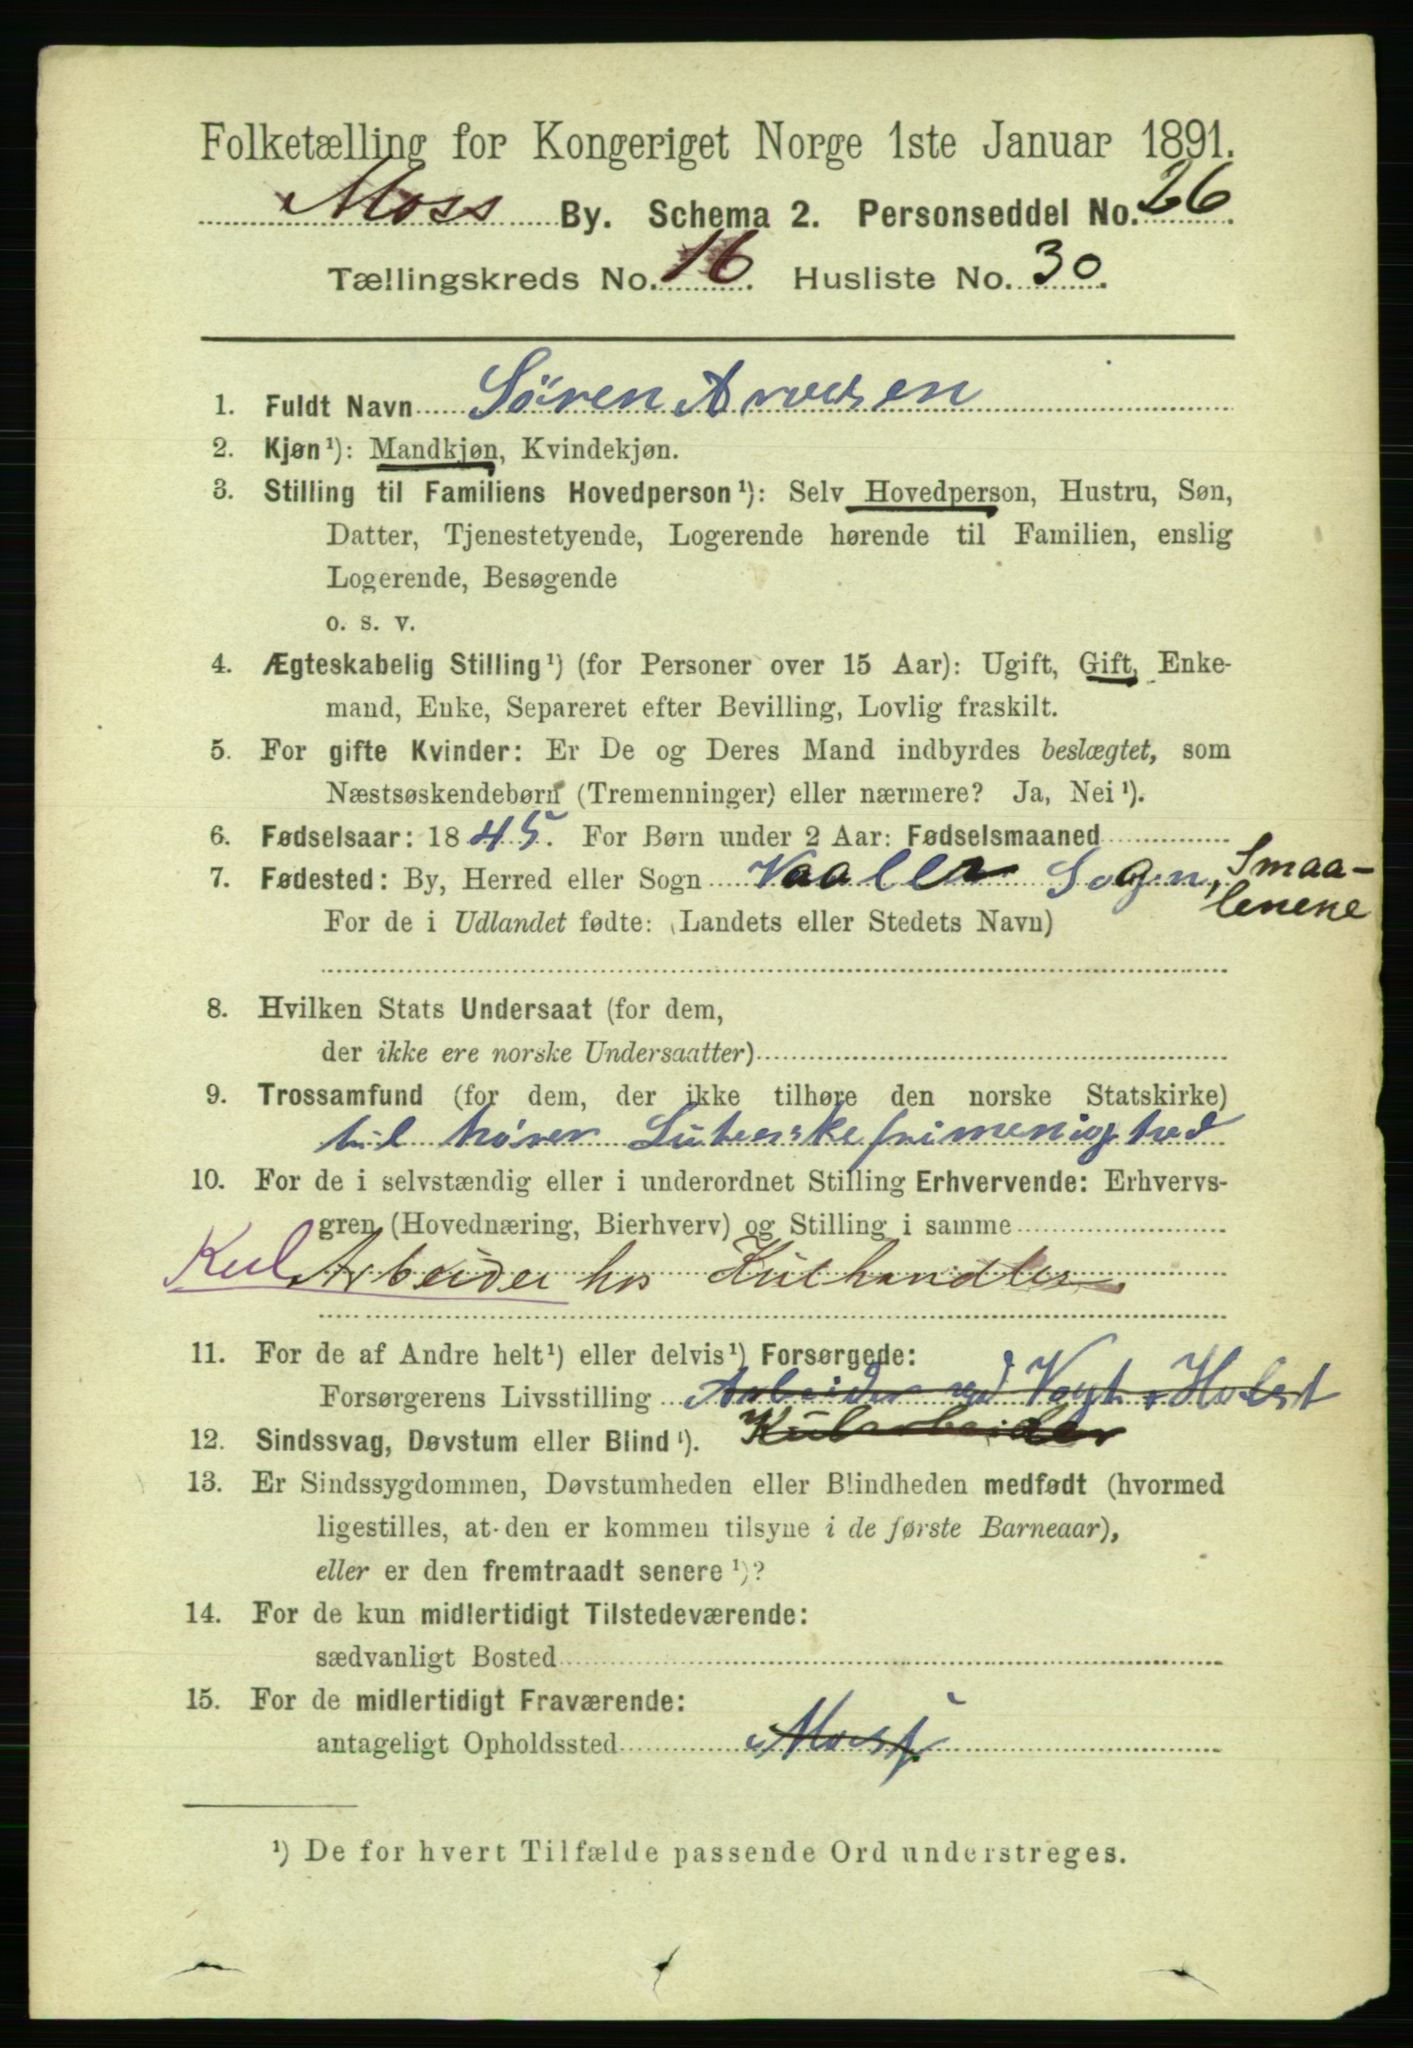 Folketælling for Kongeriget Norge 1ste Januar 1891.
Moss By. Schema 2. Personseddel No. 26.
Tællingskreds No. 16. Husliste No. 30.
1. Fuldt Navn Sören
2. Kjøn¹): Mandkjøn, Kvindekjøn.
3. Stilling til Familiens Hovedperson¹): Selv Hovedperson, Hustru, Søn,
Datter, Tjenestetyende, Logerende hørende til Familien, enslig
Logerende, Besøgende
o. s. v.
4. Ægteskabelig Stilling¹) (for Personer over 15 Aar): Ugift, Gift, Enke-
mand, Enke, Separeret efter Bevilling, Lovlig fraskilt.
5. For gifte Kvinder: Er De og Deres Mand indbyrdes beslægtet, som
Næstsøskendebørn (Tremenninger) eller nærmere? Ja, Nei¹).
6. Fødselsaar: 1845. For Børn under 2 Aar: Fødselsmaaned
7. Fødested: By, Herred eller Sogn Vaaler Sogn, Smaa-
lenene
For de i Udlandet fødte: (Landets eller Stedets Navn)
8. Hvilken Stats Undersaat (for dem,
der ikke ere norske Undersaatter)
9. Trossamfund (for dem, der ikke tilhøre den norske Statskirke)
til hörer Luterske frimenighed
10. For de i selvstændig eller i underordnet Stilling Erhvervende: Erhvervs-
gren (Hovednæring, Bierhverv) og Stilling i samme
Kul Arbeider hos Kulhandler
11. For de af Andre helt¹) eller delvis¹) Forsørgede:
Forsørgerens Livsstilling Arbeider ved Vogt & Holst
12. Sindssvag, Døvstum eller Blind¹). Kularbeider
13. Er Sindssygdommen, Døvstumheden eller Blindheden medfødt (hvormed
ligestilles, at den er kommen tilsyne i de første Barneaar),
eller er den fremtraadt senere¹)?
14. For de kun midlertidigt Tilstedeværende:
sædvanligt Bosted
15. For de midlertidigt Fraværende:
antageligt Opholdssted Moss
¹) De for hvert Tilfælde passende Ord understreges.